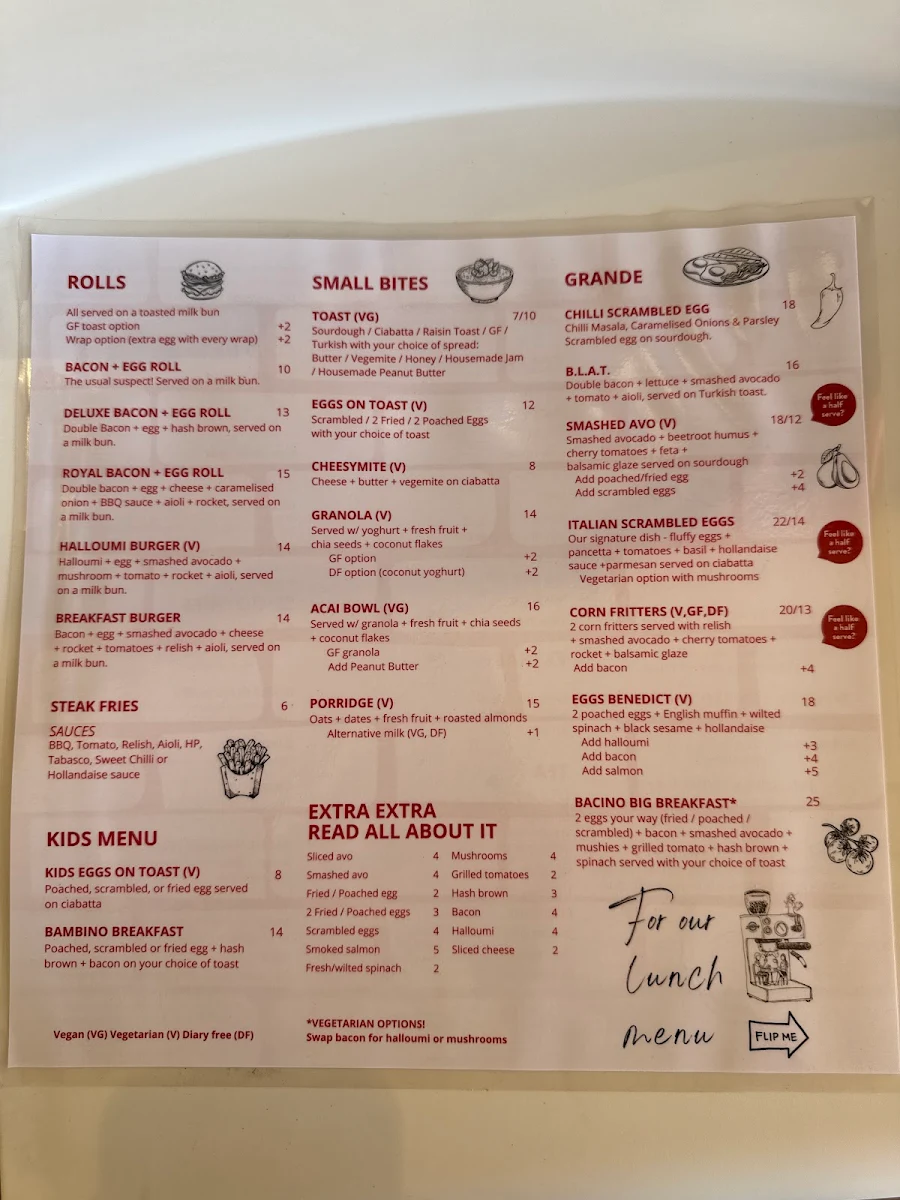 ROLLS
All served on a toasted milk bun
GF toast option +2
Wrap option (extra egg with every wrap) +2
BACON + EGG ROLL 10
The usual suspect! Served on a milk bun.
DELUXE BACON + EGG ROLL 13
Double Bacon + egg + hash brown, served on
a milk bun.
ROYAL BACON + EGG ROLL 15
Double bacon + egg + cheese + caramelised
onion + BBQ sauce + aioli + rocket, served on
a milk bun.
HALLOUMI BURGER (V) 14
Halloumi + egg + smashed avocado +
mushroom + tomato + rocket + aioli, served
on a milk bun.
BREAKFAST BURGER 14
Bacon + egg + smashed avocado + cheese
+ rocket + tomatoes + relish + aioli, served on
a milk bun.
STEAK FRIES 6
SAUCES
BBQ, Tomato, Relish, Aioli, HP,
Tabasco, Sweet Chilli or
Hollandaise sauce
KIDS MENU
KIDS EGGS ON TOAST (V) 8
Poached, scrambled, or fried egg served
on ciabatta
BAMBINO BREAKFAST 14
Poached, scrambled or fried egg + hash
brown + bacon on your choice of toast
Vegan (VG) Vegetarian (V) Diary free (DF)
SMALL BITES
TOAST (VG) 7/10
Sourdough / Ciabatta / Raisin Toast / GF /
Turkish with your choice of spread:
Butter / Vegemite / Honey / Housemade Jam
/ Housemade Peanut Butter
EGGS ON TOAST (V) 12
Scrambled / 2 Fried / 2 Poached Eggs
with your choice of toast
CHEESYMITE (V) 8
Cheese + butter + vegemite on ciabatta
GRANOLA (V) 14
Served w/ yoghurt + fresh fruit +
chia seeds + coconut flakes
GF option +2
DF option (coconut yoghurt) +2
ACAI BOWL (VG) 16
Served w/ granola + fresh fruit + chia seeds
+ coconut flakes
GF granola +2
Add Peanut Butter +2
PORRIDGE (V) 15
Oats + dates + fresh fruit + roasted almonds
Alternative milk (VG, DF) +1
EXTRA EXTRA
READ ALL ABOUT IT
Sliced avo 4 Mushrooms 4
Smashed avo 4 Grilled tomatoes 2
Fried / Poached egg 2 Hash brown 3
2 Fried / Poached eggs 3 Bacon 4
Scrambled eggs 4 Halloumi 4
Smoked salmon 5 Sliced cheese 2
Fresh/wilted spinach 2
*VEGETARIAN OPTIONS!
Swap bacon for halloumi or mushrooms
GRANDE
CHILLI SCRAMBLED EGG 18
Chilli Masala, Caramelised Onions & Parsley
Scrambled egg on sourdough.
B.L.A.T. 16
Double bacon + lettuce + smashed avocado
+ tomato + aioli, served on Turkish toast.
SMASHED AVO (V) 18/12
Feel like
a half
serve?
Smashed avocado + beetroot humus +
cherry tomatoes + feta +
balsamic glaze served on sourdough
Add poached/fried egg +2
Add scrambled eggs +4
ITALIAN SCRAMBLED EGGS 22/14
Feel like
a half
serve?
Our signature dish - fluffy eggs +
pancetta + tomatoes + basil + hollandaise
sauce +parmesan served on ciabatta
Vegetarian option with mushrooms
CORN FRITTERS (V,GF,DF) 20/13
Feel like
a half
serve?
2 corn fritters served with relish
+ smashed avocado + cherry tomatoes +
rocket + balsamic glaze
Add bacon +4
EGGS BENEDICT (V) 18
2 poached eggs + English muffin + wilted
spinach + black sesame + hollandaise
Add halloumi +3
Add bacon +4
Add salmon +5
BACINO BIG BREAKFAST* 25
2 eggs your way (fried / poached /
scrambled) + bacon + smashed avocado +
mushies + grilled tomato + hash brown +
spinach served with your choice of toast
For our
Lunch
menu
FLIP ME